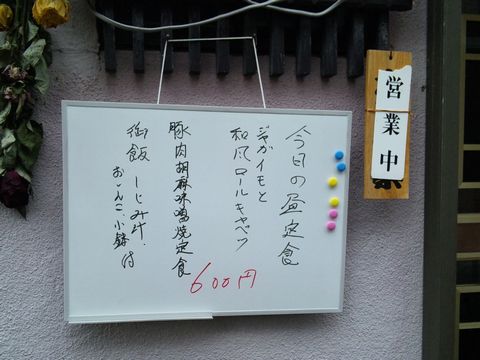 今日の昼定食
ジャガイモと
和風ロールキャベツ
豚肉胡麻味噌焼定食
御飯 しじみ汁.
おしんこ.小鉢 付
600円
営業中